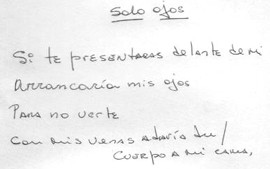 Solo ojos
Si te presentaras delante de mi
Arrancaría mis ojos
Para no verte
Con mis venas ataría tu/
cuerpo a mi cama,